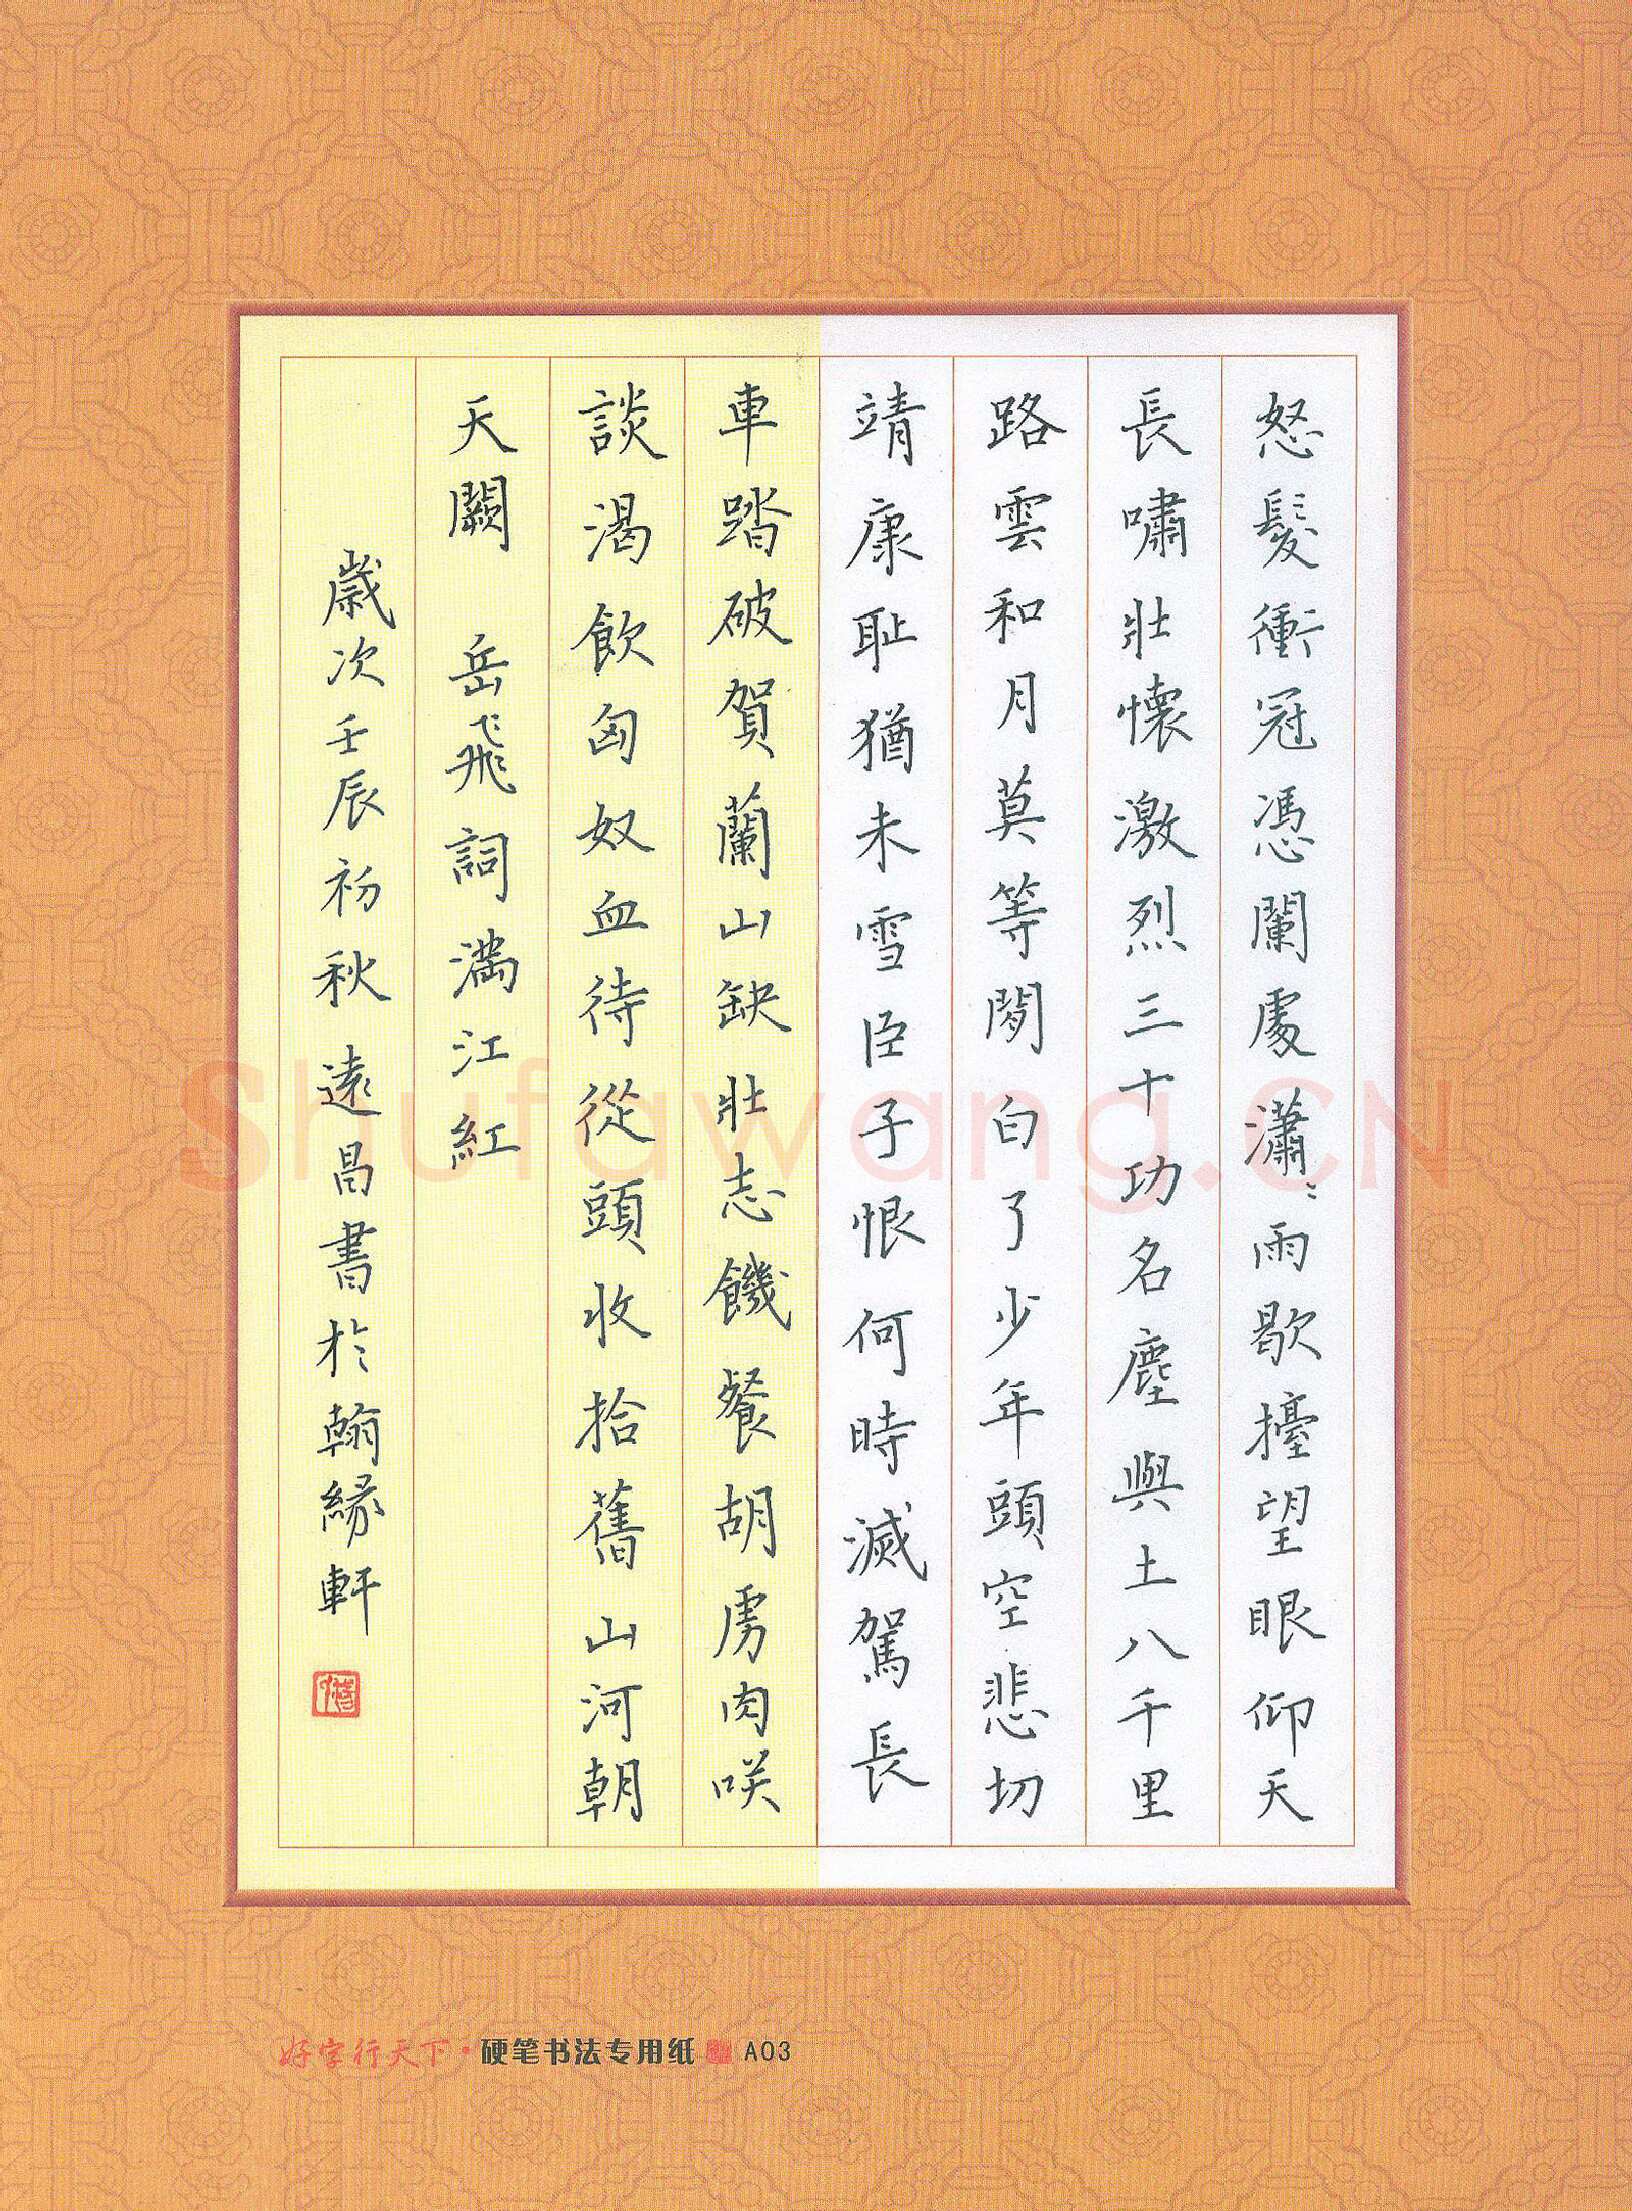 怒髮衝冠憑闌處瀟〻雨歇擡望眼仰天
長嘯壯懷激烈三十功名塵與土八千里
路雲和月莫等閒白了少年頭空悲切
靖康耻猶未雪臣子恨何時滅駕長
車踏破賀蘭山缺壯志饑餐胡虜肉咲
談渴飲匈奴血待從頭收拾舊山河朝
天闕 岳飛詞滿江紅
歲次壬辰初秋遠昌書於翰緣軒
好字行天下·硬笔书法专用纸 A03
Shufawang.CN